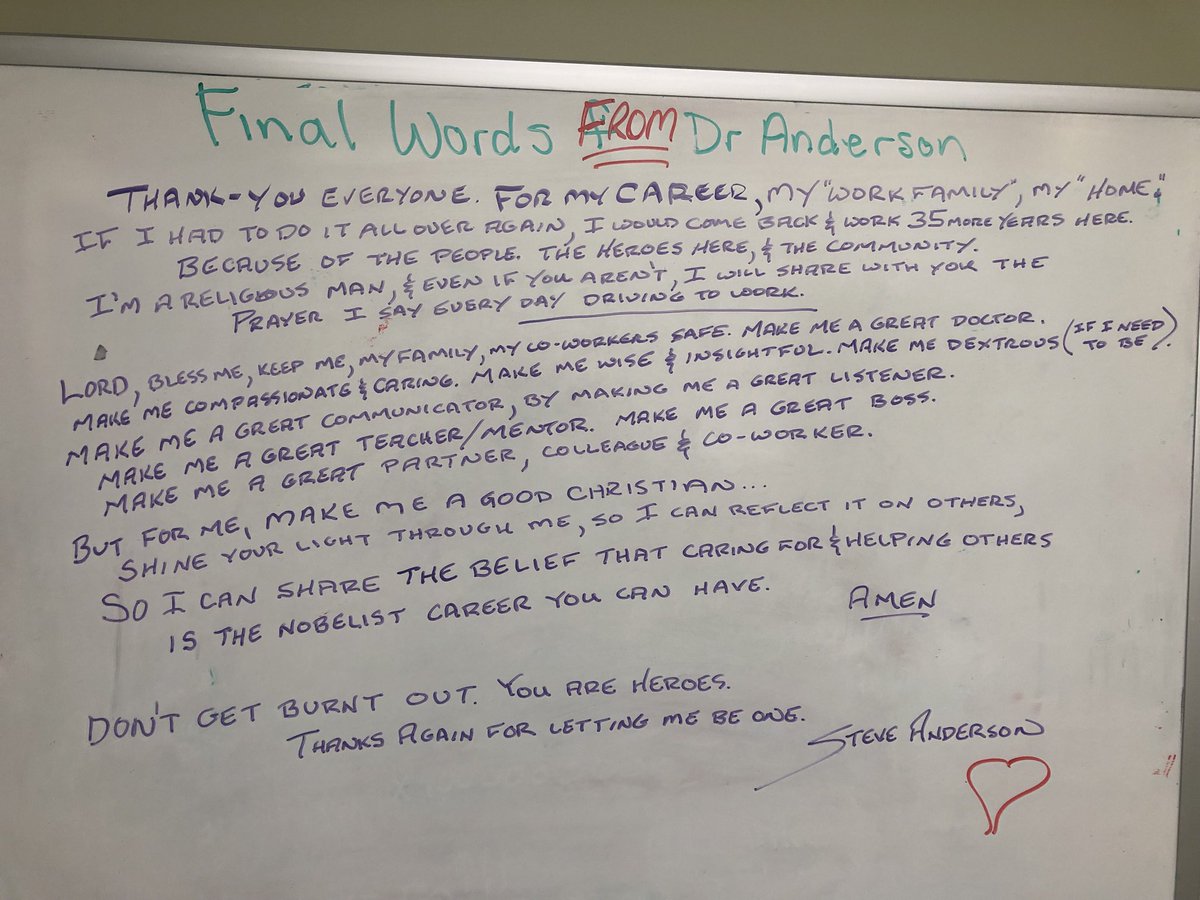 Final Words FROM Dr Anderson
THANK-YOU EVERYONE. FOR MY CAREER, MY "WORK FAMILY", MY "HOME".
IF I HAD TO DO IT ALL OVER AGAIN, I WOULD COME BACK & WORK 35 MORE YEARS HERE.
BECAUSE OF THE PEOPLE. THE HEROES HERE, & THE COMMUNITY.
I'M A RELIGIOUS MAN, & EVEN IF YOU AREN'T, I WILL SHARE WITH YOU THE
PRAYER I SAY EVERY DAY DRIVING TO WORK.
LORD, BLESS ME, KEEP ME, MY FAMILY, MY CO-WORKERS SAFE. MAKE ME A GREAT DOCTOR.
MAKE ME COMPASSIONATE & CARING. MAKE ME WISE & INSIGHTFUL. MAKE ME DEXTROUS (IF I NEED TO BE).
MAKE ME A GREAT COMMUNICATOR, BY MAKING ME A GREAT LISTENER.
MAKE ME A GREAT TEACHER/MENTOR. MAKE ME A GREAT BOSS.
MAKE ME A GREAT PARTNER, COLLEAGUE & CO-WORKER.
BUT FOR ME, MAKE ME A GOOD CHRISTIAN...
SHINE YOUR LIGHT THROUGH ME, SO I CAN REFLECT IT ON OTHERS,
SO I CAN SHARE THE BELIEF THAT CARING FOR & HELPING OTHERS
IS THE NOBELIST CAREER YOU CAN HAVE.
AMEN
DON'T GET BURNT OUT. YOU ARE HEROES.
THANKS AGAIN FOR LETTING ME BE ONE.
STEVE ANDERSON